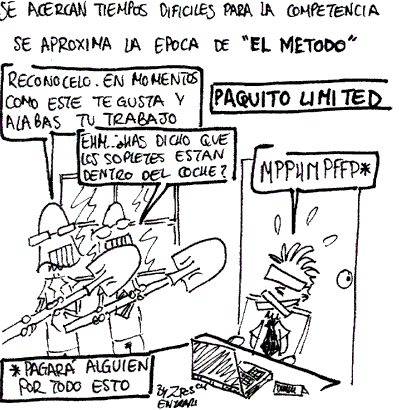 SE ACERCAN TIEMPOS DIFICILES PARA LA COMPETENCIA
SE APROXIMA LA EPOCA DE "EL METODO"
RECONOCELO. EN MOMENTOS
COMO ESTE TE GUSTA Y
ALABAS TU TRABAJO
EHM..¿HAS DICHO QUE
LOS SOPLETES ESTAN
DENTRO DEL COCHE?
PAQUITO LIMITED
MPPHMPFFP*
*PAGARÁ ALGUIEN
POR TODO ESTO
BY